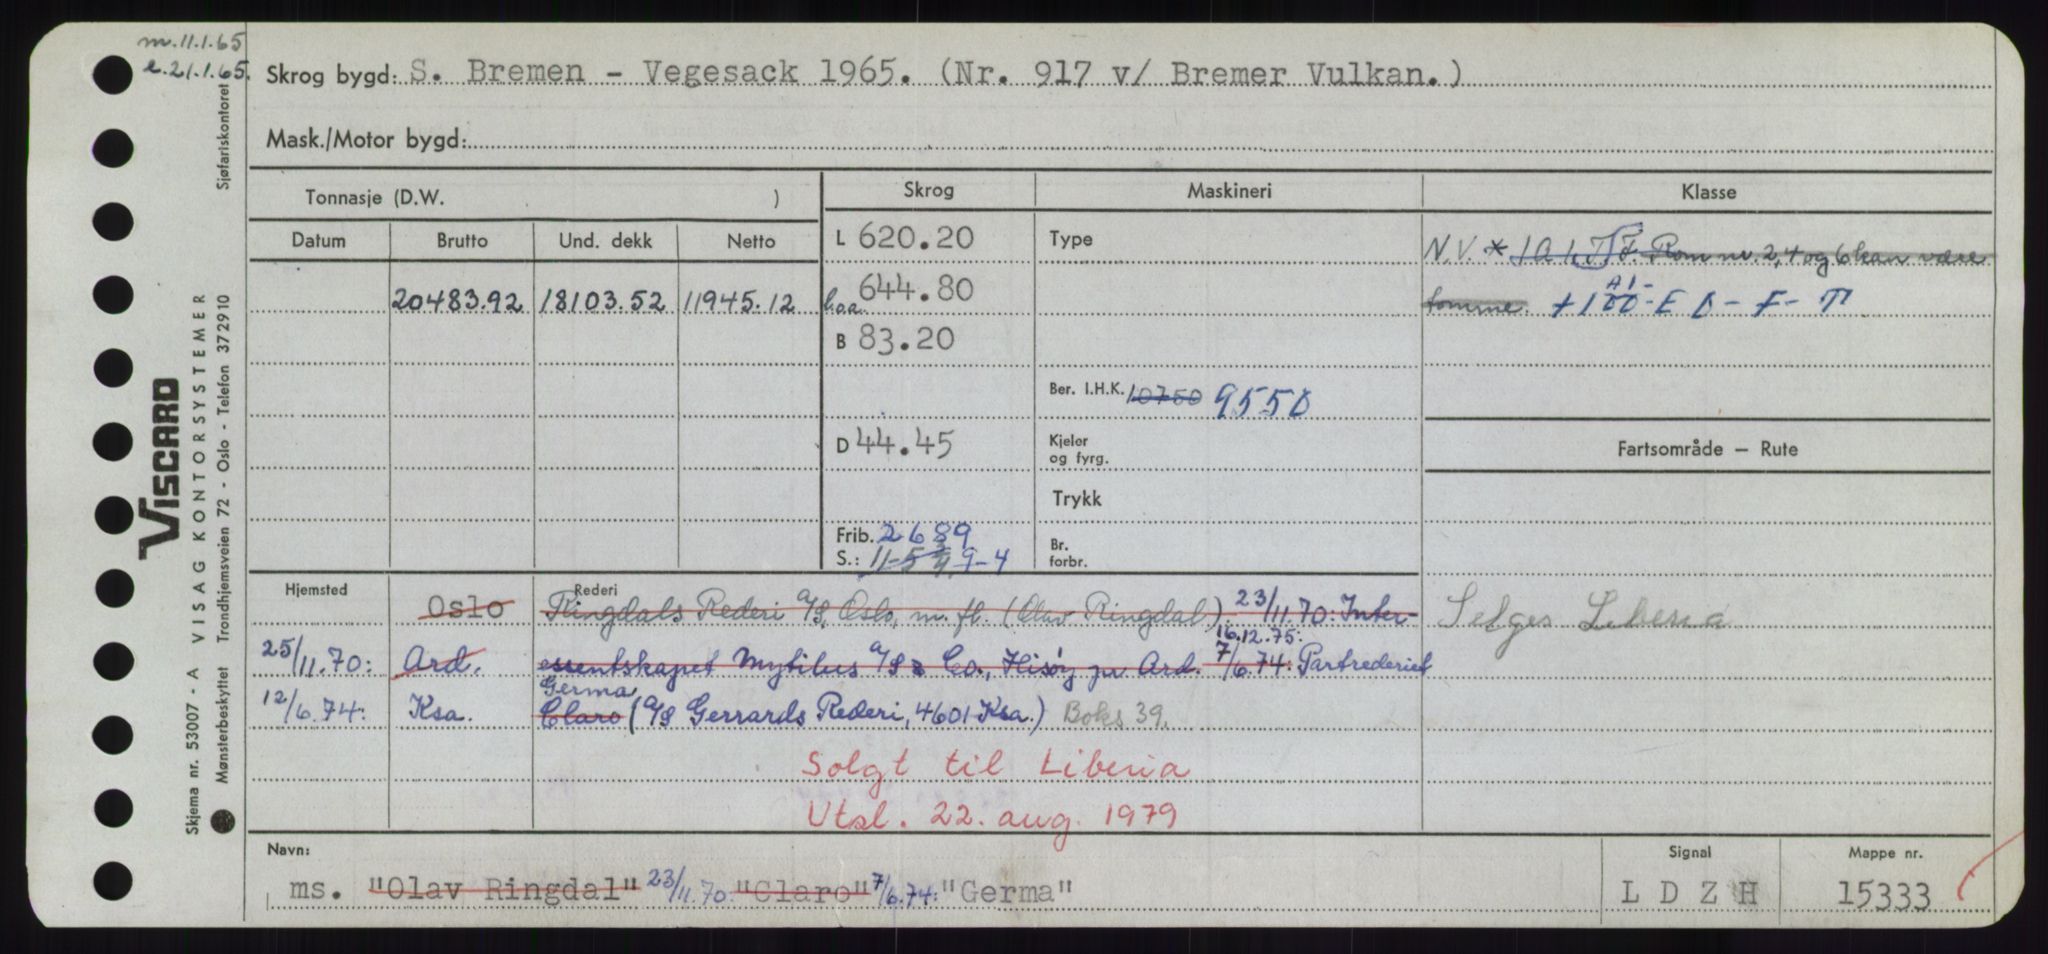 m. 11.1.65
e. 21.1.65.
Skrog bygd: S. Bremen - Vegesack 1965. (Nr. 917 v/ Bremer Vulkan.)
Mask./Motor bygd:
Tonnasje (D.W. )
Skrog
Maskineri
Klasse
Datum Brutto Und. dekk Netto
20483.92 18103.52 11945.12
L 620.20
b.o.a. 644.80
B 83.20
D 44.45
Frib. 2689
S.: 11-5 9-4
Type
Ber. I.H.K. 10750 9550
Kjeler
og fyrg.
Trykk
Br.
forbr.
N.V. * 1A1. T. F. Rom nr. 2,4 og 6 kan være
tomme. + 100 A1 - E D - F - T
Fartsområde — Rute
Selges Liberia
Hjemsted Rederi
Oslo Ringdals Rederi A/S, Oslo, m. fl. (Olav Ringdal). 23/11.70: Inter-
16.12.75:
25/11.70: Ard. essentskapet Mytilus A/S & Co., Hisøy pr Ard. 7/6.74: Partrederiet
Germa
12/6.74: Ksa. Claro (A/S Gerrards Rederi, 4601 Ksa.) Boks 39.
Solgt til Liberia
Utsl. 22. aug. 1979
Navn:
ms. "Olav Ringdal" 23/11.70: "Claro" 7/6.74: "Germa"
Signal
L D Z H
Mappe nr.
15333
VISCARD
Skjema nr. 53007 - A VISAG KONTORSYSTEMER
Mønsterbeskyttet Trondhjemsveien 72 - Oslo - Telefon 372910 Sjøfartskontoret